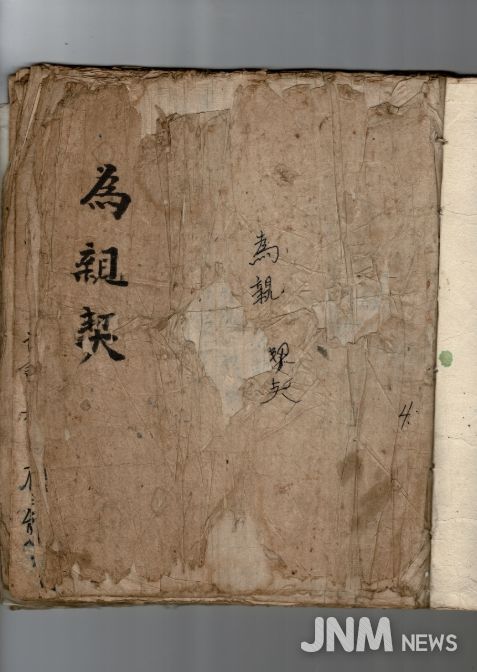 為親契
為親契
4.
JNM NEWS